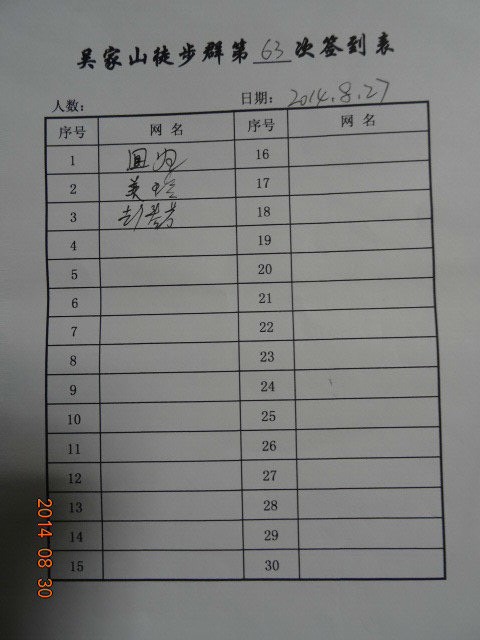 吴家山徒步群第63次签到表
人数: 日期: 2014.8.27
序号 网名 序号 网名
1 16
2 美玲 17
3 18
4 19
5 20
6 21
7 22
8 23
9 24
10 25
11 26
12 27
13 28
14 29
15 30
2014 08 30